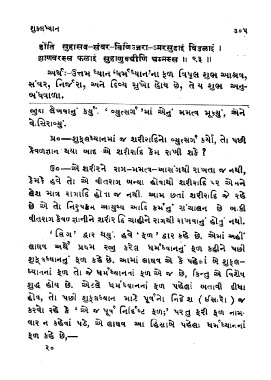 શુકલધ્યાન ૩૦૫
હોંતિ સુહાસવ-સંવર-વિણિજ્જરાઽમરસુહાઈં વિઉલાઈં ।
ઝાણવરસ્સ ફલાઈં સુહાણુબંધીણિ ધમ્મસ્સ ॥ ૯૩ ॥
અર્થ:–ઉત્તમ ધ્યાન 'ધર્મધ્યાન'ના ફળ વિપુલ શુભ આશ્રવ,
સંવર, નિર્જરા, અને દિવ્ય સુખો હોય છે, તે ય શુભ અનુ-
બંધવાળા.
જુદા લેખવાનું કર્યું. 'વ્યુત્સર્ગ'માં એનું મમત્વ મૂક્યું, અને
વોસિરાવ્યું.
પ્ર૦–શુકલધ્યાનમાં જ શરીરાદિનો વ્યુત્સર્ગ કર્યો, તો પછી
કેવળજ્ઞાન થયા બાદ એ શરીરાદિ કેમ રાખી શકે ?
ઉ૦–એ શરીરને રાગ-મમત્વ-આસંગથી રાખતા જ નથી,
કેમકે હવે તો એ વીતરાગ બન્યા હોવાથી શરીરાદિ પર એમને
લેશ માત્ર રાગાદિ હોતા જ નથી. આમ છતાં શરીરાદિ જે રહે
છે એ તો નિરુપક્રમ આયુષ્ય આદિ કર્મનું સંચાલન છે બાકી
વીતરાગ કેવળજ્ઞાનીને શરીરાદિ ચાહીને રાગથી રાખવાનું હોતું નથી.
'લિંગ' દ્વાર થયું. હવે 'ફળ' દ્વાર કહે છે. એમાં અહીં
લાઘવ અર્થે પ્રથમ રજુ કરેલ ધર્મધ્યાનનું ફળ કહીને પછી
શુકલધ્યાનનું ફળ કહે છે. આમાં લાઘવ એ કે પહેલાં બે શુકલ-
ધ્યાનનાં ફળ તો જે ધર્મધ્યાનનાં ફળ એ જ છે, કિન્તુ એ વિશેષ
શુદ્ધ હોય છે. એટલે ધર્મધ્યાનનાં ફળ પહેલાં બતાવી દીધા
હોય, તો પછી શુકલધ્યાન માટે પૂર્વનો નિર્દેશ (ઈસારો) જ
કરવો રહે કે 'એ જ પૂર્વ નિર્દિષ્ટ ફળ;' પરંતુ ફરી ફળ નામ-
વાર ન કહેવાં પડે, એ લાઘવ આ હિસાબે પહેલાં ધર્મધ્યાનનાં
ફળ કહે છે,—
૨૦